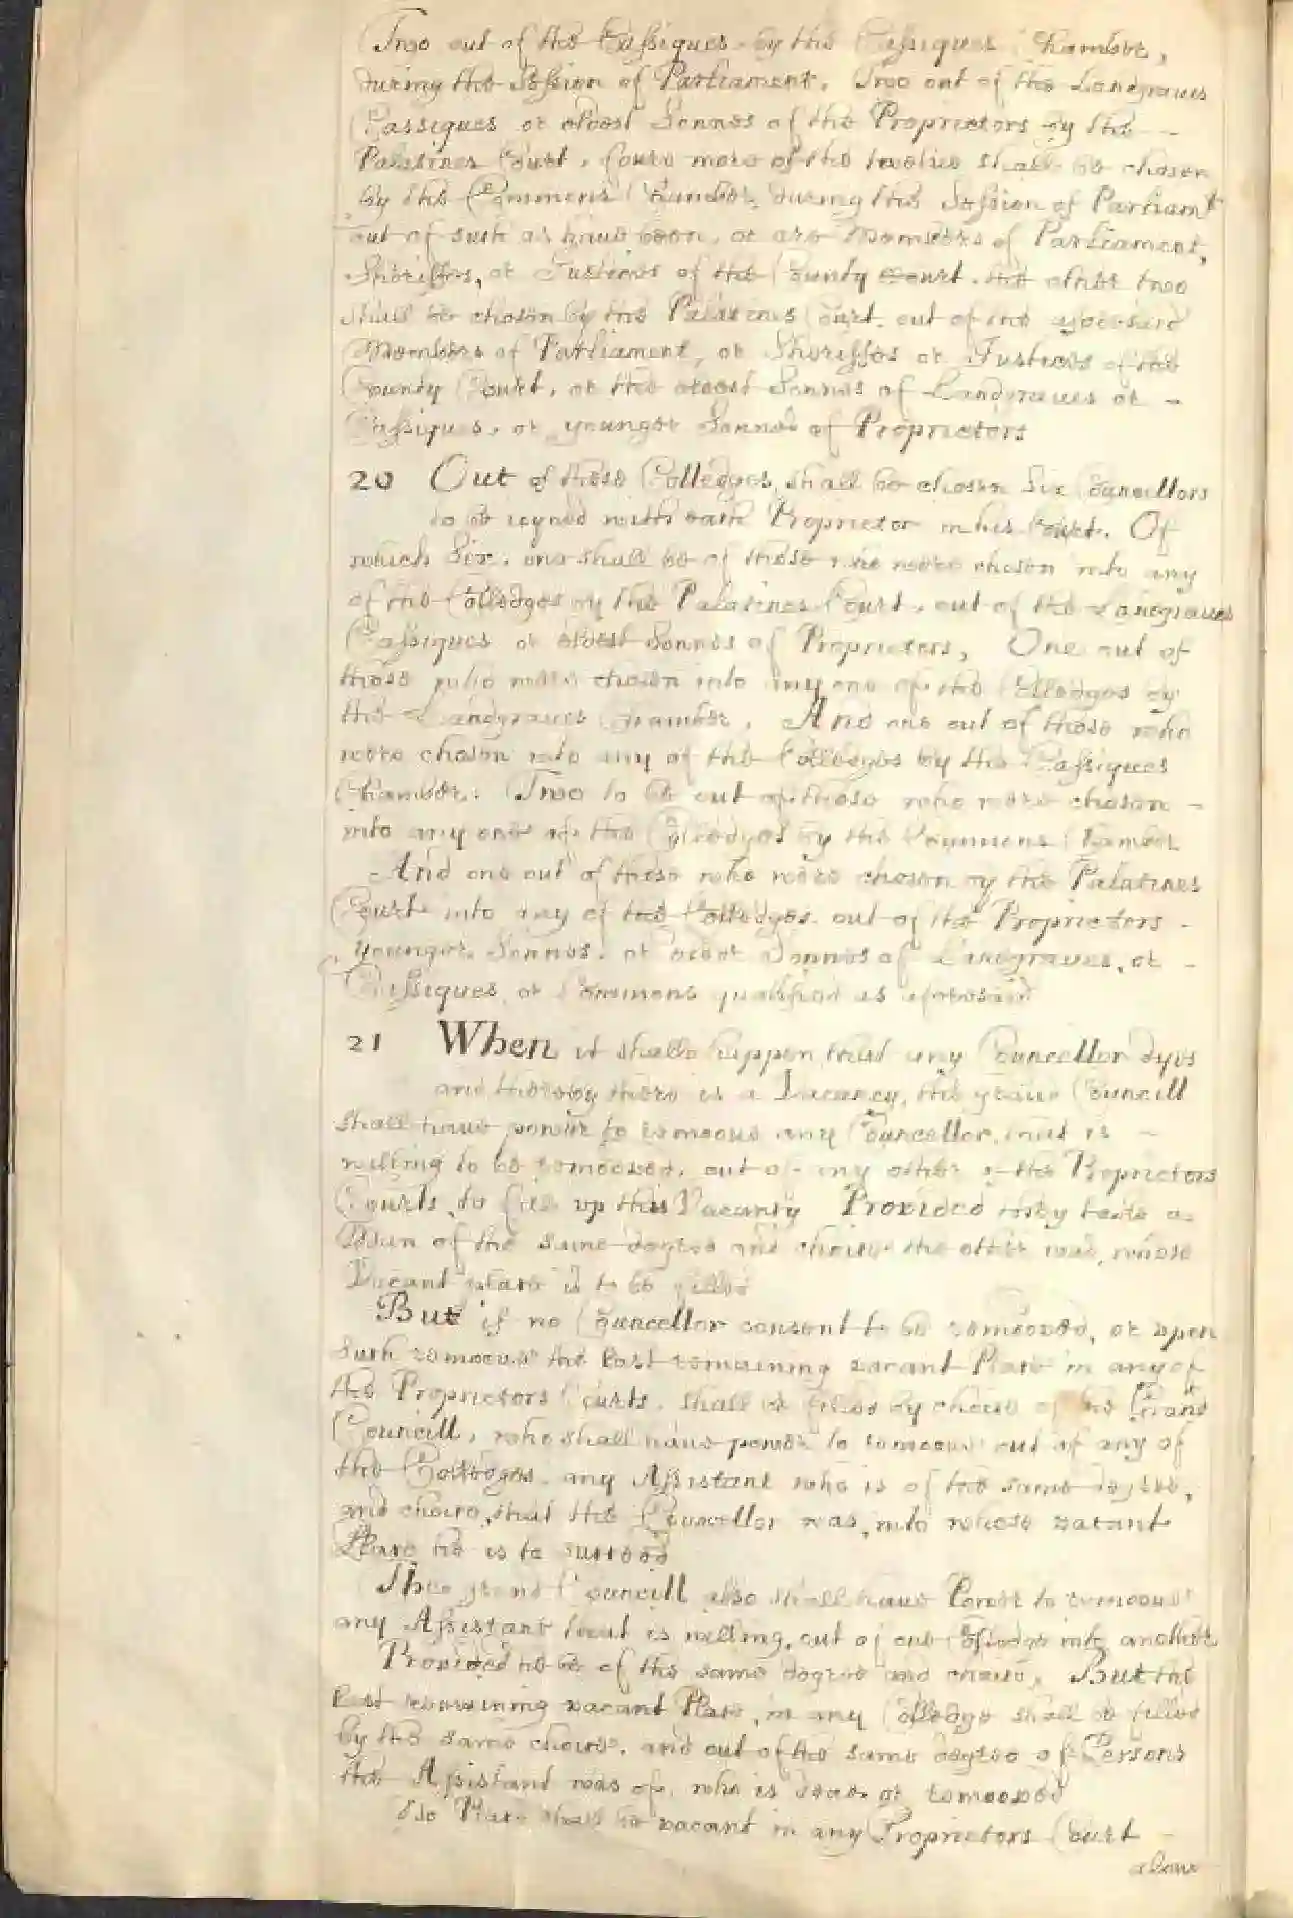 Two out of the Cassiques by the Cassiques Chamber,
during the Session of Parliament. Two out of the Landgraves
Cassiques or eldest Sonnes of the Proprietors by the
Palatines Court. foure more of the twelve shall be chosen
by the Commons Chamber, during the Session of Parliamt
out of such as have been, or are Members of Parliament,
Sheriffes, or Justices of the County Court. the other two
shall be chosen by the Palatines Court. out of the aforesaid
Members of Parliament, or Sheriffes or Justices of the
County Court, or the eldest Sonnes of Landgraves or
Cassiques, or younger Sonnes of Proprietors
20 Out of these Colledges, shall be chosen Six Councellors
to be joyned with each Proprietor in his Court. Of
which Six, one shall be of those who were chosen into any
of the Colledges by the Palatines Court, out of the Landgraves
Cassiques or eldest Sonnes of Proprietors, One out of
those who were chosen into any one of the Colledges by
the Landgraves Chamber. And one out of those who
were chosen into any of the Colledges by the Cassiques
Chamber. Two to be out of those who were chosen
into any one of the Colledges by the Commons Chamber
And one out of those who were chosen by the Palatines
Court into any of the Colledges. out of the Proprietors
younger Sonnes, or eldest Sonnes of Landgraves, or
Cassiques, or Commons qualified as aforesaid
21 When it shall happen that any Councellor dyes
and thereby there is a Vacancy, the grand Councill
shall have power to remoove any Councellor that is
willing to be remooved, out of any other of the Proprietors
Courts to fill up this Vacancy Provided they take a
Man of the same degree and choice the other was, whose
Vacant place is to be filled
But if no Councellor consent to be remooved, or upon
Such remoove the last remaining vacant Place in any of
the Proprietors Courts, shall be filled by choice of the Grand
Councill, who shall have power to remoove out of any of
the Colledges, any Assistant who is of the same degree,
and choice, that the Councellor was, into whose vacant
Place he is to succeed
The grand Councill also shall have Power to remoove
any Assistant that is willing, out of one Colledge into another
Provided he be of the same degree and choice, But the
last remaining vacant Place, in any Colledge shall be filled
by the same choice, and out of the same degree of Persons
the Assistant was of, who is dead or remooved
No Place shall be vacant in any Proprietors Court
above